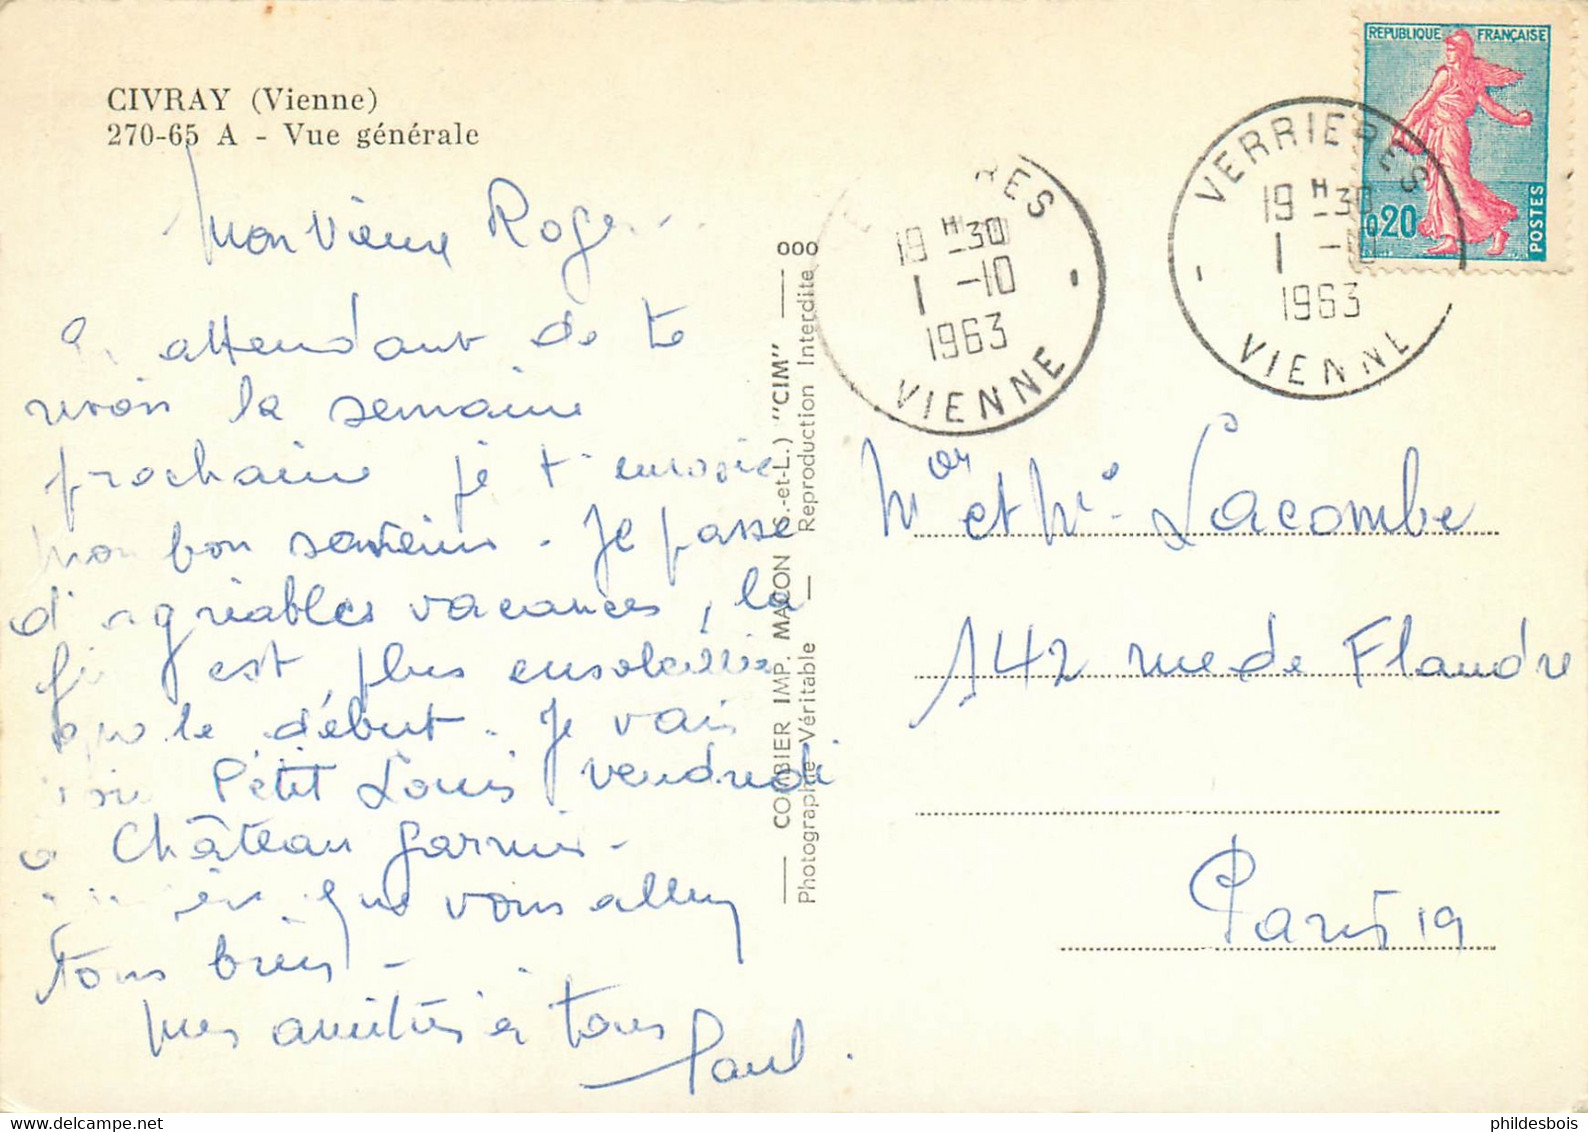 CIVRAY (Vienne)
270-65 A - Vue générale
Mon vieux Roger
En attendant de te
revoir la semaine
prochaine je t'envoie
mon bon souvenir. Je passe
d'agréables vacances, la
fin est plus ensoleillée
que le début. Je vais
voir Petit Louis vendredi
à Château Garnier.
que vous allez
tous bien.
mes amitiés à tous
Paul.
COMBIER IMP. MACON (S.-et-L.) "CIM"
Photographie Véritable — Reproduction Interdite
VERRIERES
19 H -30
1 -10
1963
VIENNE
VERRIERES
19 H -30
1 -10
1963
VIENNE
REPUBLIQUE FRANÇAISE
0,20
POSTES
Mor et Me Lacombe
142 rue de Flandre
Paris 19
phildesbois